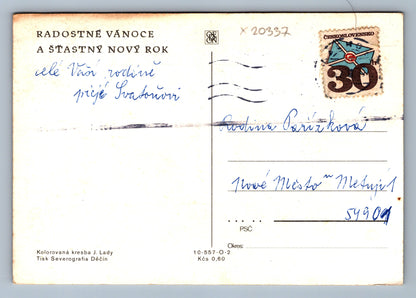 × 20337
RADOSTNÉ VÁNOCE
A ŠŤASTNÝ NOVÝ ROK
celé Vaší rodině
přeje Svatoňovi
ČESKOSLOVENSKO
30
Rodina Pařízková
Nové Město n Metují 1
54901
PSČ
Okres:
Kolorovaná kresba J. Lady
Tisk Severografia Děčín
10-557-O-2
Kčs 0,60